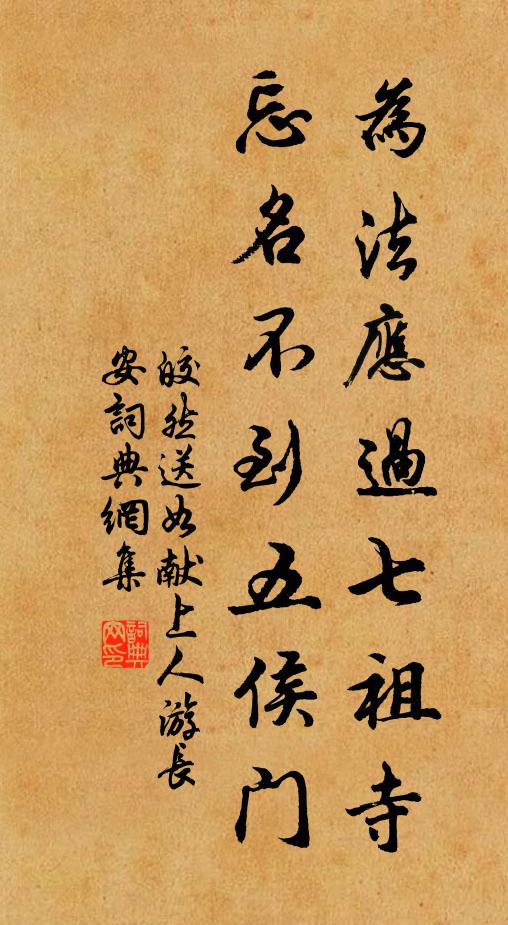 為法應過七祖寺
忘名不到五侯門
皎然送如献上人游長
安詞典網集
詞典
网印